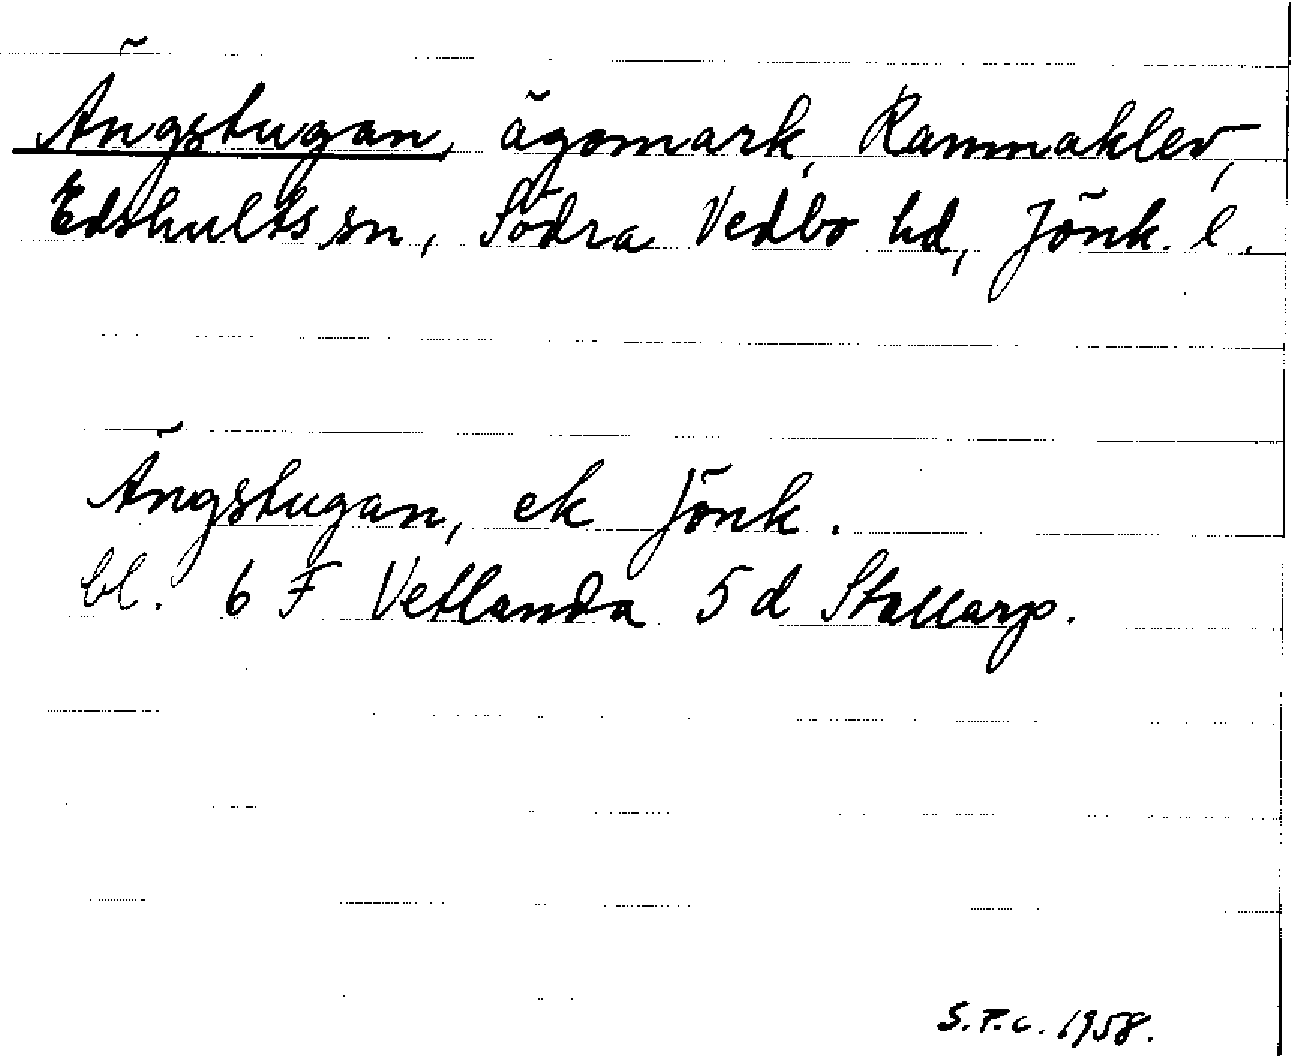 Ängstugan, ägomark, Rammaklev,
Edshults sn, Södra Vedbo hd, Jönk. l.
Ängstugan, ek Jönk.
bl. 6 F Vetlanda 5 d Stallarp.
S.F.c. 1958.